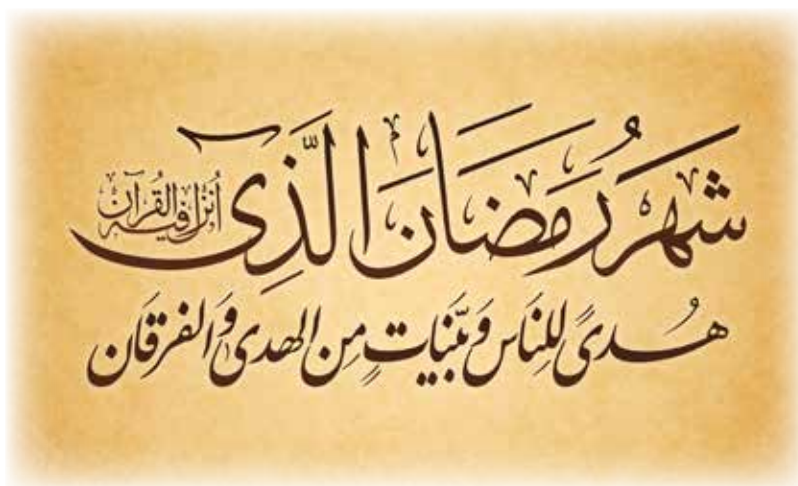 شَهْرُ رَمَضَانَ الَّذِی أُنْزِلَ فِیهِ الْقُرْآن
هُدىً لِلنَاسِ وَ بَیّنَاتٍ مِن الهدى وَ الفرقَان